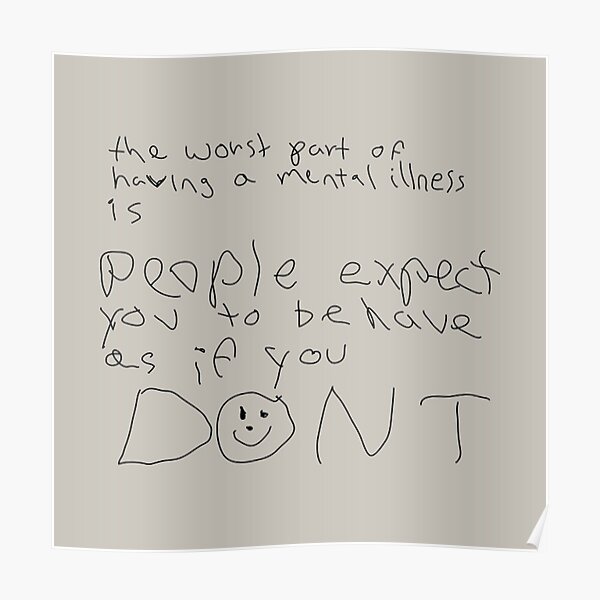 the worst part of
having a mental illness
is
people expect
you to behave
as if you
DONT